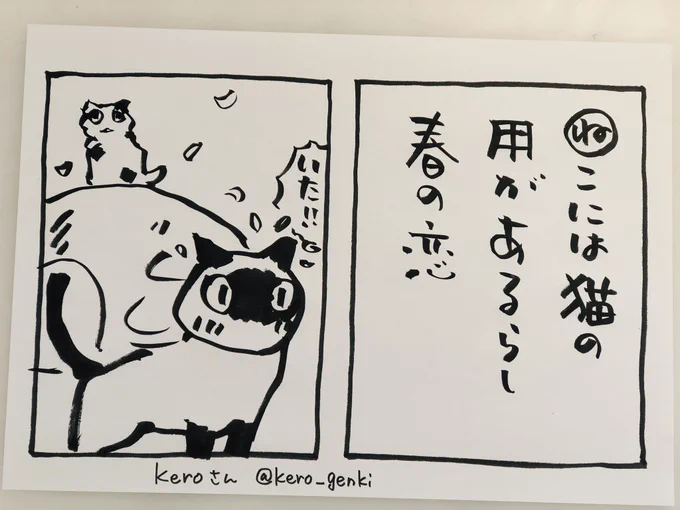 ねこには猫の
用があるらし
春の恋
いた!!
keroさん @kero_genki